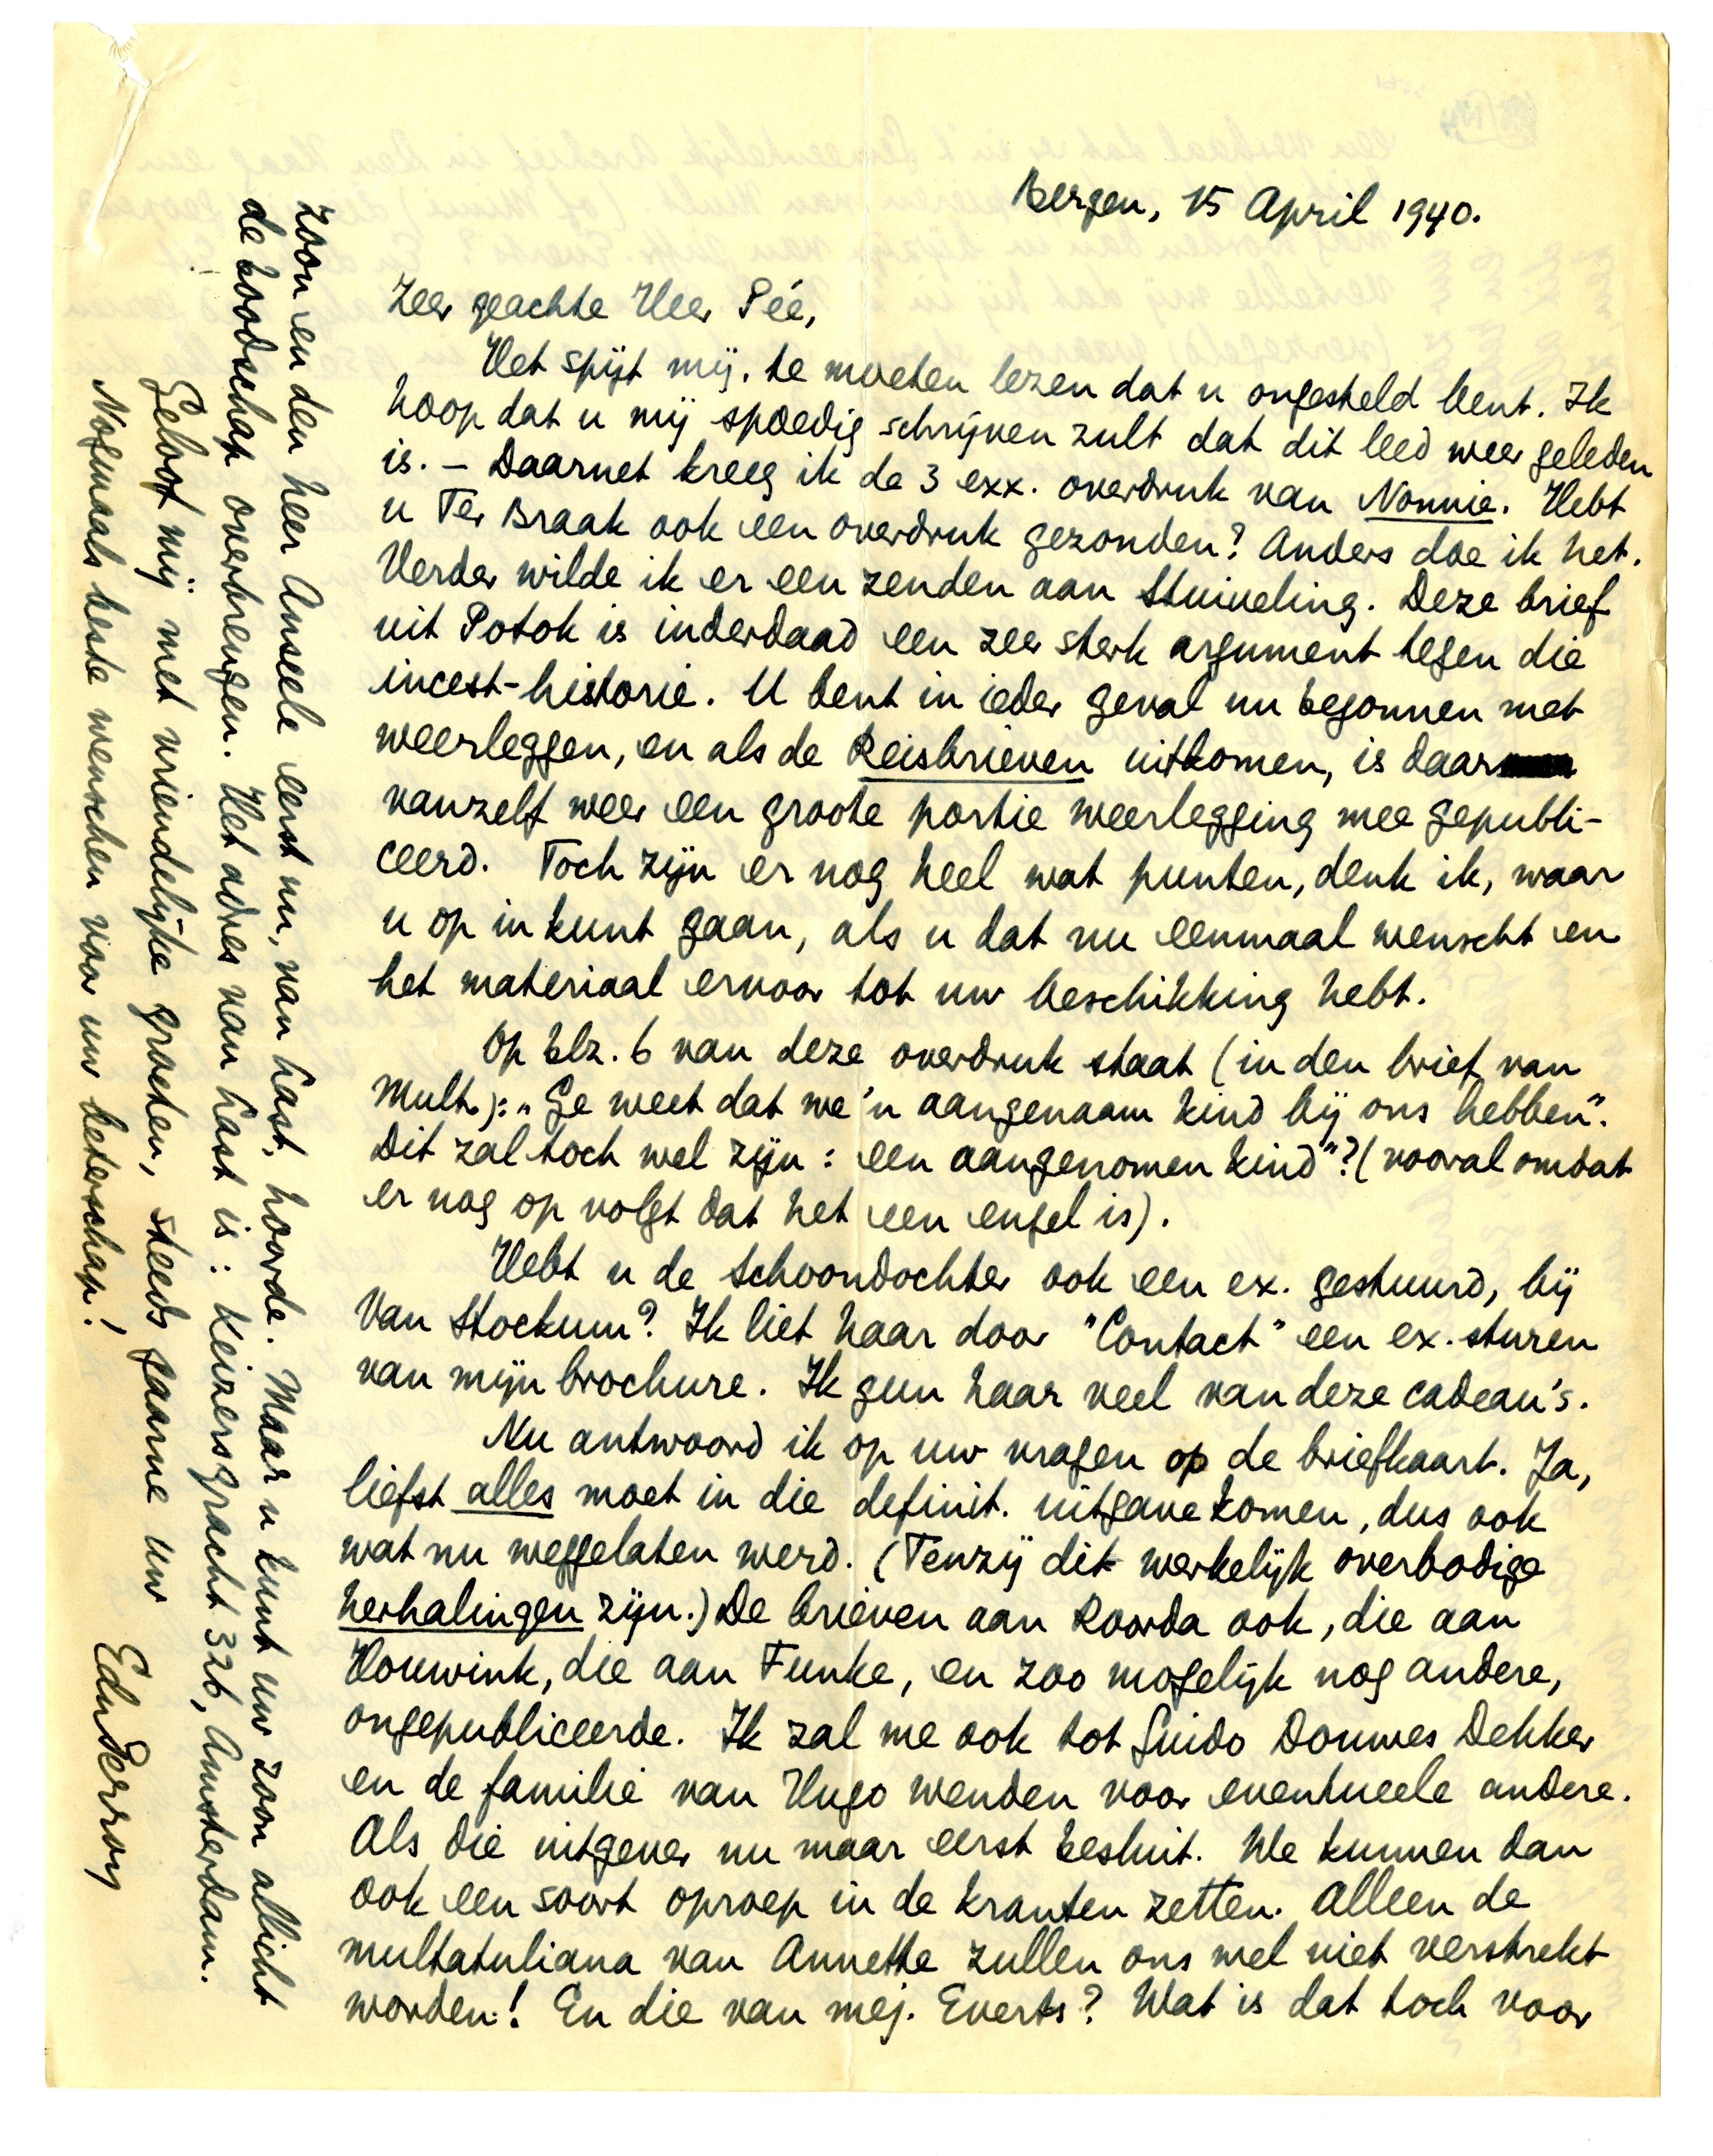 Bergen, 15 April 1940.
Zeer geachte Heer Pée,
Het spijt mij te moeten lezen dat u ongesteld bent. Ik
hoop dat u mij spoedig schrijven zult dat dit leed weer geleden
is. – Daarnet kreeg ik de 3 exx. overdruk van Nonnie. Hebt
u Ter Braak ook een overdruk gezonden? Anders doe ik het.
Verder wilde ik er een zenden aan Stuiveling. Deze brief
uit Potok is inderdaad een zeer sterk argument tegen die
incest-historie. U bent in ieder geval nu begonnen met
weerleggen, en als de Reisbrieven uitkomen, is daar
vanzelf weer een groote portie weerlegging mee gepubli-
ceerd. Toch zijn er nog heel wat punten, denk ik, waar
u op in kunt gaan, als u dat nu eenmaal wenscht en
het materiaal ervoor tot uw beschikking hebt.
Op blz. 6 van deze overdruk staat (in den brief van
Mult.): „Ge weet dat we 'n aangenaam kind bij ons hebben".
Dit zal toch wel zijn: een aangenomen kind"? (vooral omdat
er nog op volgt dat het een engel is).
Hebt u de schoondochter ook een ex. gestuurd, bij
Van Stockum? Ik liet haar door "Contact" een ex. sturen
van mijn brochure. Ik gun haar veel van deze cadeau's.
Nu antwoord ik op uw vragen op de briefkaart. Ja,
liefst alles moet in die definit. uitgave komen, dus ook
wat nu weggelaten werd. (Tenzij dit werkelijk overbodige
herhalingen zijn.) De brieven aan Roorda ook, die aan
Houwink, die aan Funke, en zoo mogelijk nog andere,
ongepubliceerde. Ik zal me ook tot Guido Douwes Dekker
en de familie van Hugo wenden voor eventueele andere.
Als die uitgever nu maar eerst besluit. We kunnen dan
ook een soort oproep in de kranten zetten. Alleen de
multatuliana van Annette zullen ons wel niet verstrekt
worden! En die van mej. Everts? Wat is dat toch voor
zoon en den heer Anseele eerst nu, van Last, hoorde. Maar u kunt uw zoon allicht
de boodschap overbrengen. Het adres van Last is: Keizersgracht 326, Amsterdam.
Geloof mij met vriendelijke groeten, steeds gaarne uw
EduPerron
Nogmaals beste wenschen voor uw beterschap!